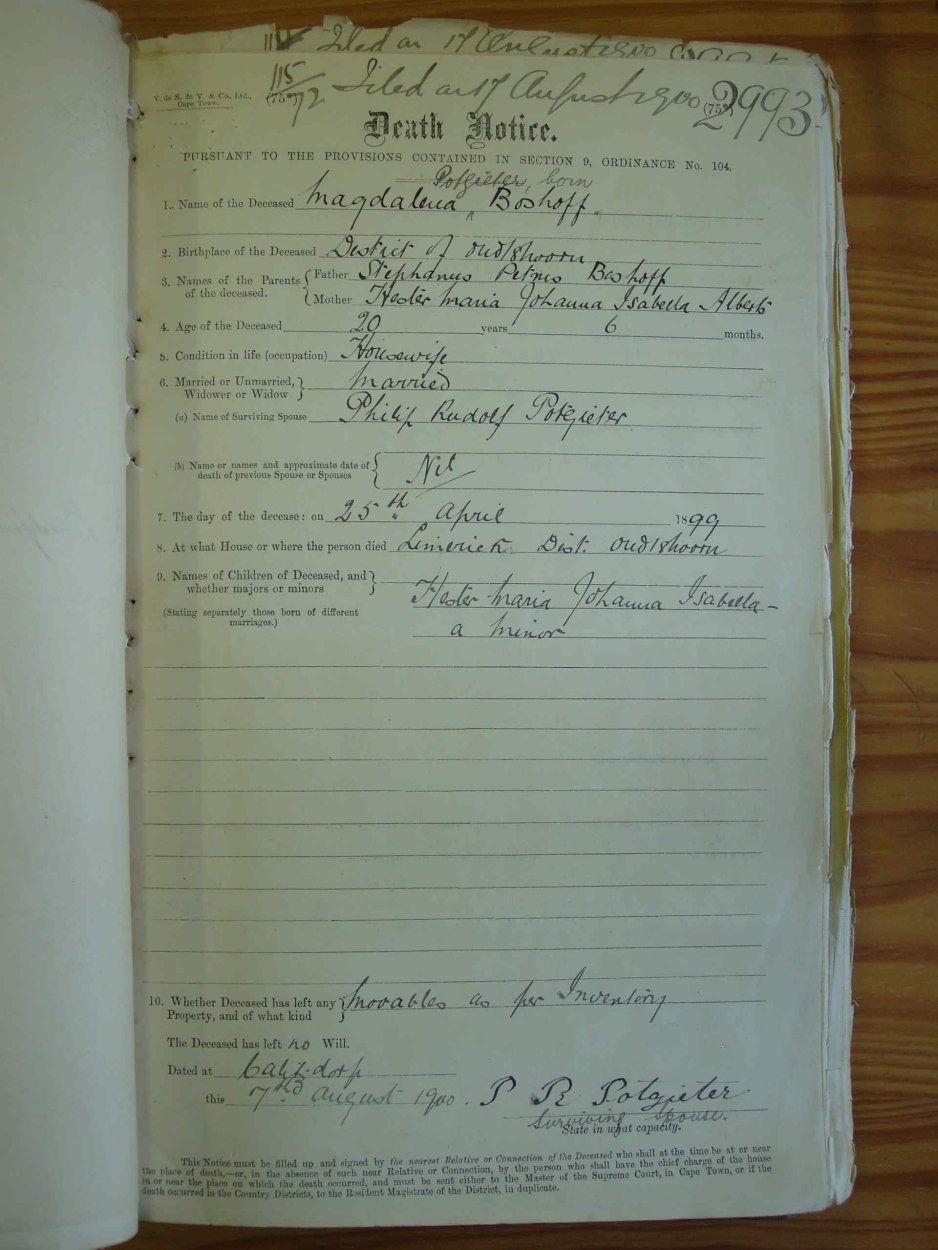 Filed on 17
115
(75*) 72 Filed on 17 August 1900 (75*) 2993
V. de S. de V. & Co., Ltd.,
Cape Town.
Death Notice.
PURSUANT TO THE PROVISIONS CONTAINED IN SECTION 9, ORDINANCE No. 104.
Potgieter, born
1. Name of the Deceased Magdalena ‸ Boshoff
2. Birthplace of the Deceased District of Oudtshoorn
3. Names of the Parents of the deceased. { Father Stephanus Petrus Boshoff
Mother Hester Maria Johanna Isabella Alberts
4. Age of the Deceased 20 years 6 months.
5. Condition in life (occupation) Housewife
6. Married or Unmarried, Widower or Widow } Married
(a) Name of Surviving Spouse Philip Rudolf Potgieter
(b) Name or names and approximate date of death of previous Spouse or Spouses { Nil
7. The day of the decease: on 25th April 1899
8. At what House or where the person died Limerick Dist. Oudtshoorn
9. Names of Children of Deceased, and whether majors or minors }
(Stating separately those born of different marriages.)
Hester Maria Johanna Isabella –
a minor
10. Whether Deceased has left any Property, and of what kind } Movables as per Inventory
The Deceased has left no Will.
Dated at Calitzdorp
this 7th August 1900. P R Potgieter
Surviving Spouse.
State in what capacity.
This Notice must be filled up and signed by the nearest Relative or Connection of the Deceased who shall at the time be at or near
the place of death,—or, in the absence of such near Relative or Connection, by the person who shall have the chief charge of the house
in or near the place on which the death occurred, and must be sent either to the Master of the Supreme Court, in Cape Town, or if the
death occurred in the Country Districts, to the Resident Magistrate of the District, in duplicate.